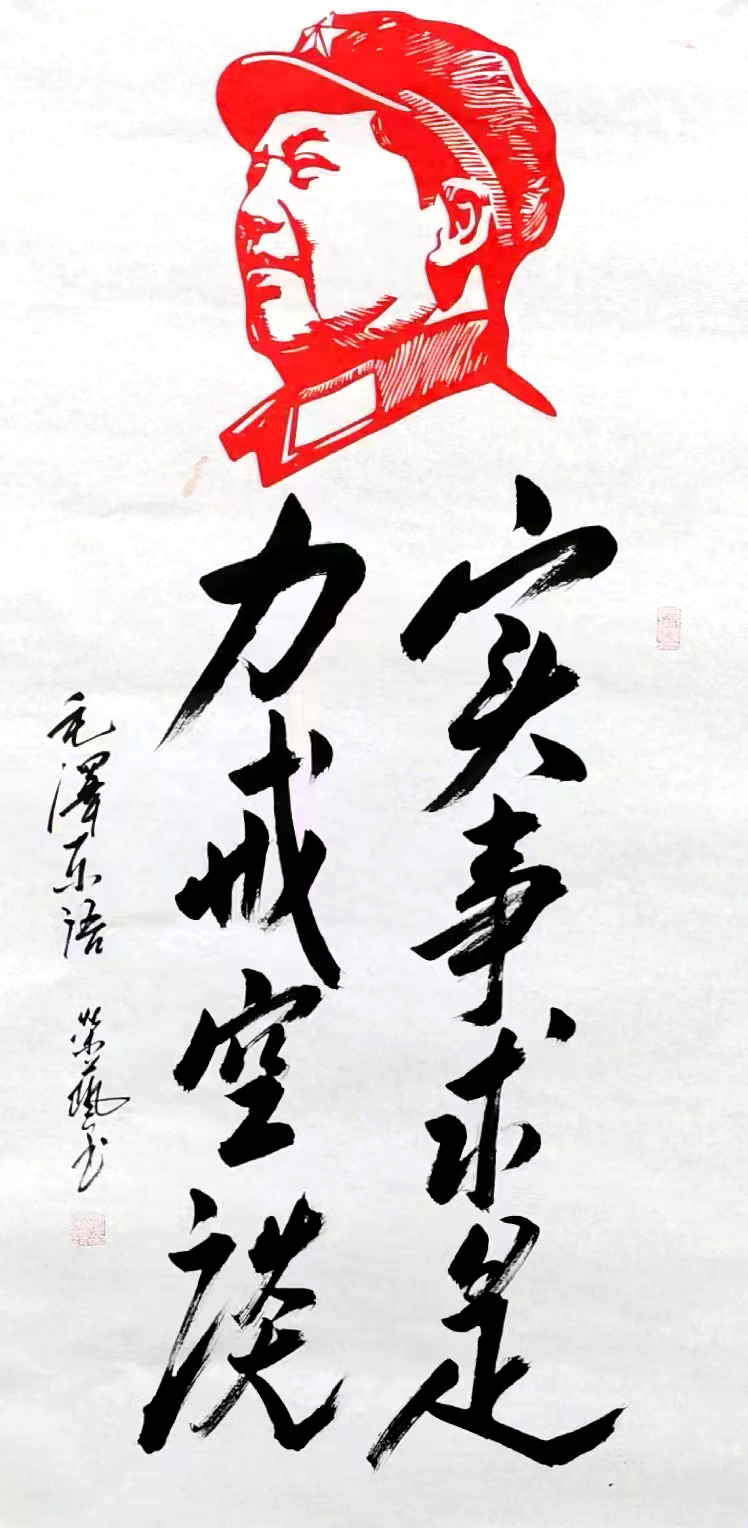 实事求是
力戒空谈
毛澤东语 荣艺书